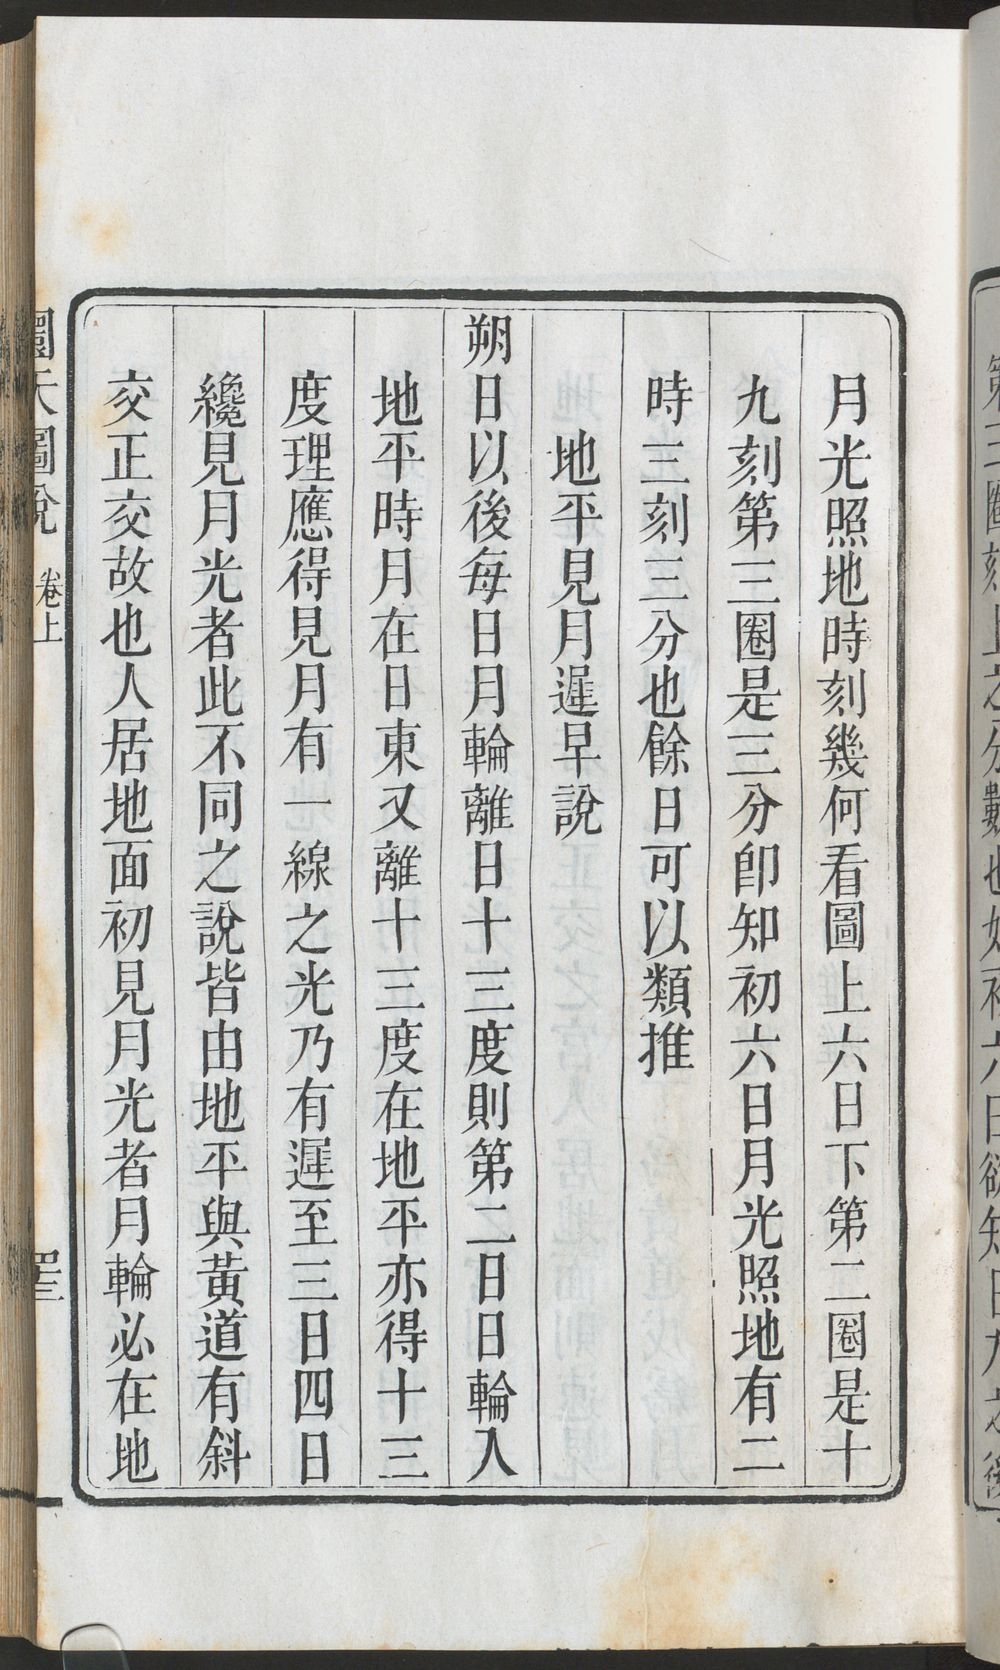 月光照地時刻幾何看圖上六日下第二圈是十
九刻第三圈是三分卽知初六日月光照地有二
時三刻三分也餘日可以類推
地平見月遲早說
朔日以後每日月輪離日十三度則第二日日輪入
地平時月在日東又離十三度在地平亦得十三
度理應得見月有一線之光乃有遲至三日四日
纔見月光者此不同之說皆由地平與黃道有斜
交正交故也人居地面初見月光者月輪必在地
圜天圖說 卷上